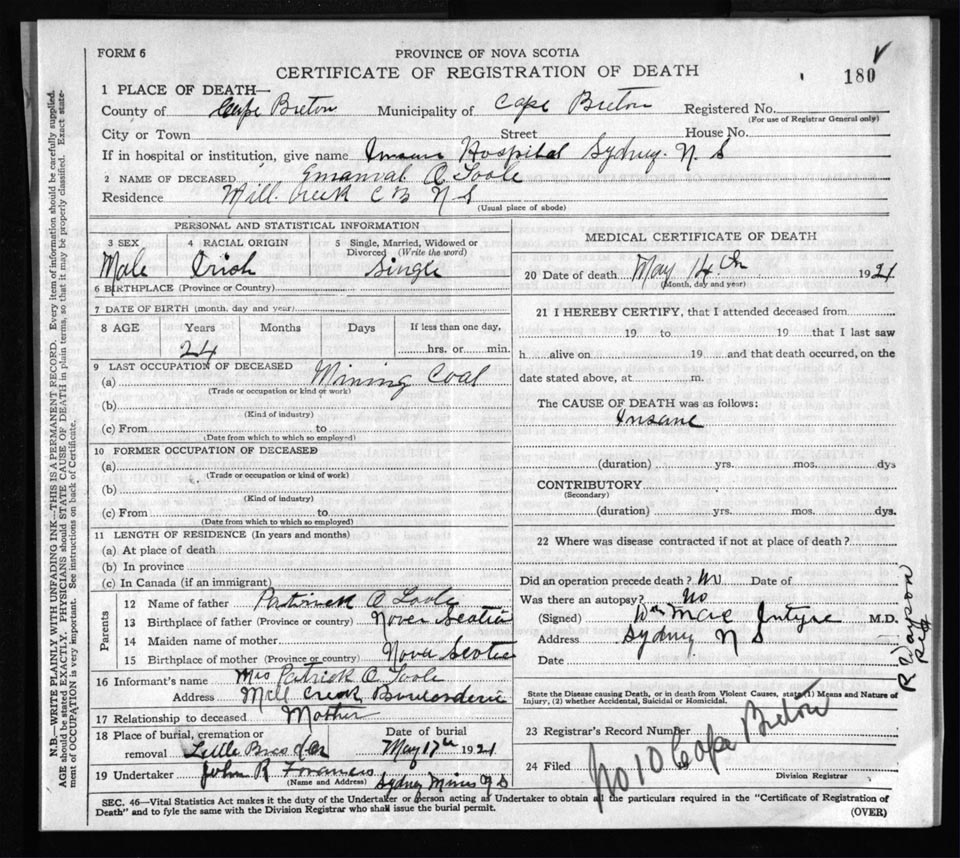 FORM 6
PROVINCE OF NOVA SCOTIA
CERTIFICATE OF REGISTRATION OF DEATH
180
1 PLACE OF DEATH—
County of Cape Breton Municipality of Cape Breton Registered No.
(For use of Registrar General only)
City or Town Street House No.
If in hospital or institution, give name Insane Hospital Sydney. N. S
2 NAME OF DECEASED Emanual O Toole
Residence Mill Creek C B N S
(Usual place of abode)
PERSONAL AND STATISTICAL INFORMATION
3 SEX 4 RACIAL ORIGIN 5 Single, Married, Widowed or Divorced (Write the word)
Male Irish Single
6 BIRTHPLACE (Province or Country)
7 DATE OF BIRTH (month, day and year)
8 AGE Years Months Days If less than one day,
24 hrs. or min.
9 LAST OCCUPATION OF DECEASED
(a) Mining Coal
(Trade or occupation or kind of work)
(b)
(Kind of industry)
(c) From to
(Date from which to which so employed)
10 FORMER OCCUPATION OF DECEASED
(a)
(Trade or occupation or kind of work)
(b)
(Kind of industry)
(c) From to
(Date from which to which so employed)
11 LENGTH OF RESIDENCE (In years and months)
(a) At place of death
(b) In province
(c) In Canada (if an immigrant)
Parents
12 Name of father Patrick O Toole
13 Birthplace of father (Province or country) Nova Scotia
14 Maiden name of mother
15 Birthplace of mother (Province or country) Nova Scotia
16 Informant's name Mrs Patrick O Toole
Address Mill Creek
17 Relationship to deceased Mother
18 Place of burial, cremation or removal Little Bras d'or Date of burial May 17th 1921
19 Undertaker John R Francis Sydney Mines N S
(Name and Address)
MEDICAL CERTIFICATE OF DEATH
20 Date of death May 14th 1921
(Month, day and year)
21 I HEREBY CERTIFY, that I attended deceased from
19 to 19 that I last saw
h alive on 19 and that death occurred, on the
date stated above, at m.
The CAUSE OF DEATH was as follows:
Insane
(duration) yrs. mos. dys
CONTRIBUTORY
(Secondary)
(duration) yrs. mos. dys.
22 Where was disease contracted if not at place of death?
Did an operation precede death? No Date of
Was there an autopsy? No
(Signed) Wm Mac Intyre M.D.
Address Sydney N S
Date
State the Disease causing Death, or in death from Violent Causes, state (1) Means and Nature of
Injury, (2) whether Accidental, Suicidal or Homicidal.
23 Registrar's Record Number
24 Filed
Division Registrar
No 10 Cape Breton
SEC. 46—Vital Statistics Act makes it the duty of the Undertaker or person acting as Undertaker to obtain all the particulars required in the "Certificate of Registration of
Death" and to fyle the same with the Division Registrar who shall issue the burial permit.
(OVER)
N.B.—WRITE PLAINLY WITH UNFADING INK—THIS IS A PERMANENT RECORD. Every item of information should be carefully supplied.
AGE should be stated EXACTLY. PHYSICIANS should STATE CAUSE OF DEATH in plain terms, so that it may be properly classified. Exact statement of OCCUPATION is very important. See instructions on back of Certificate.